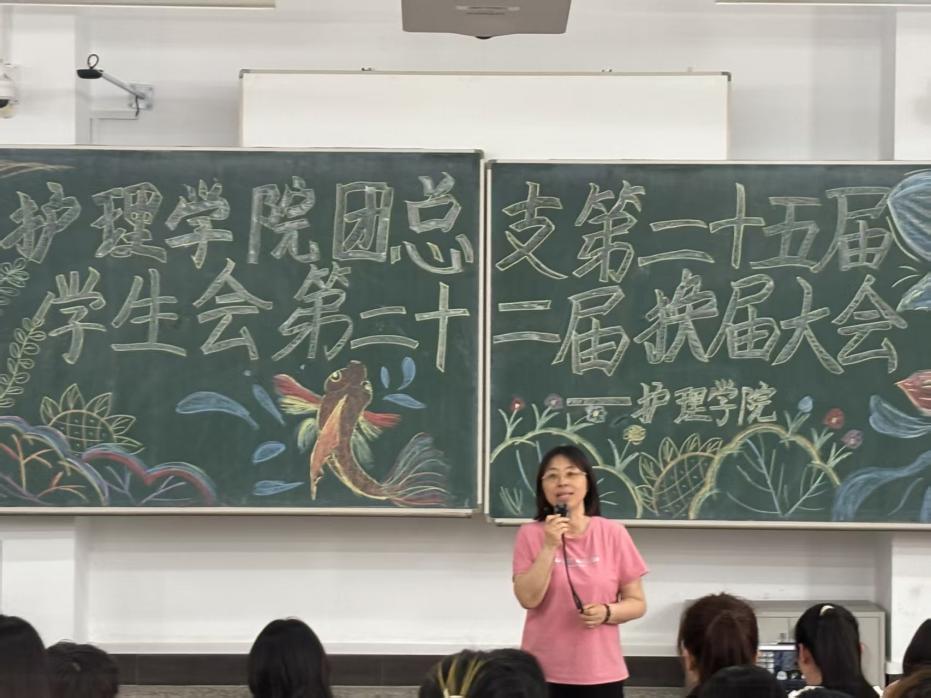 护理学院团总支第二十五届
学生会第二十二届换届大会
——护理学院